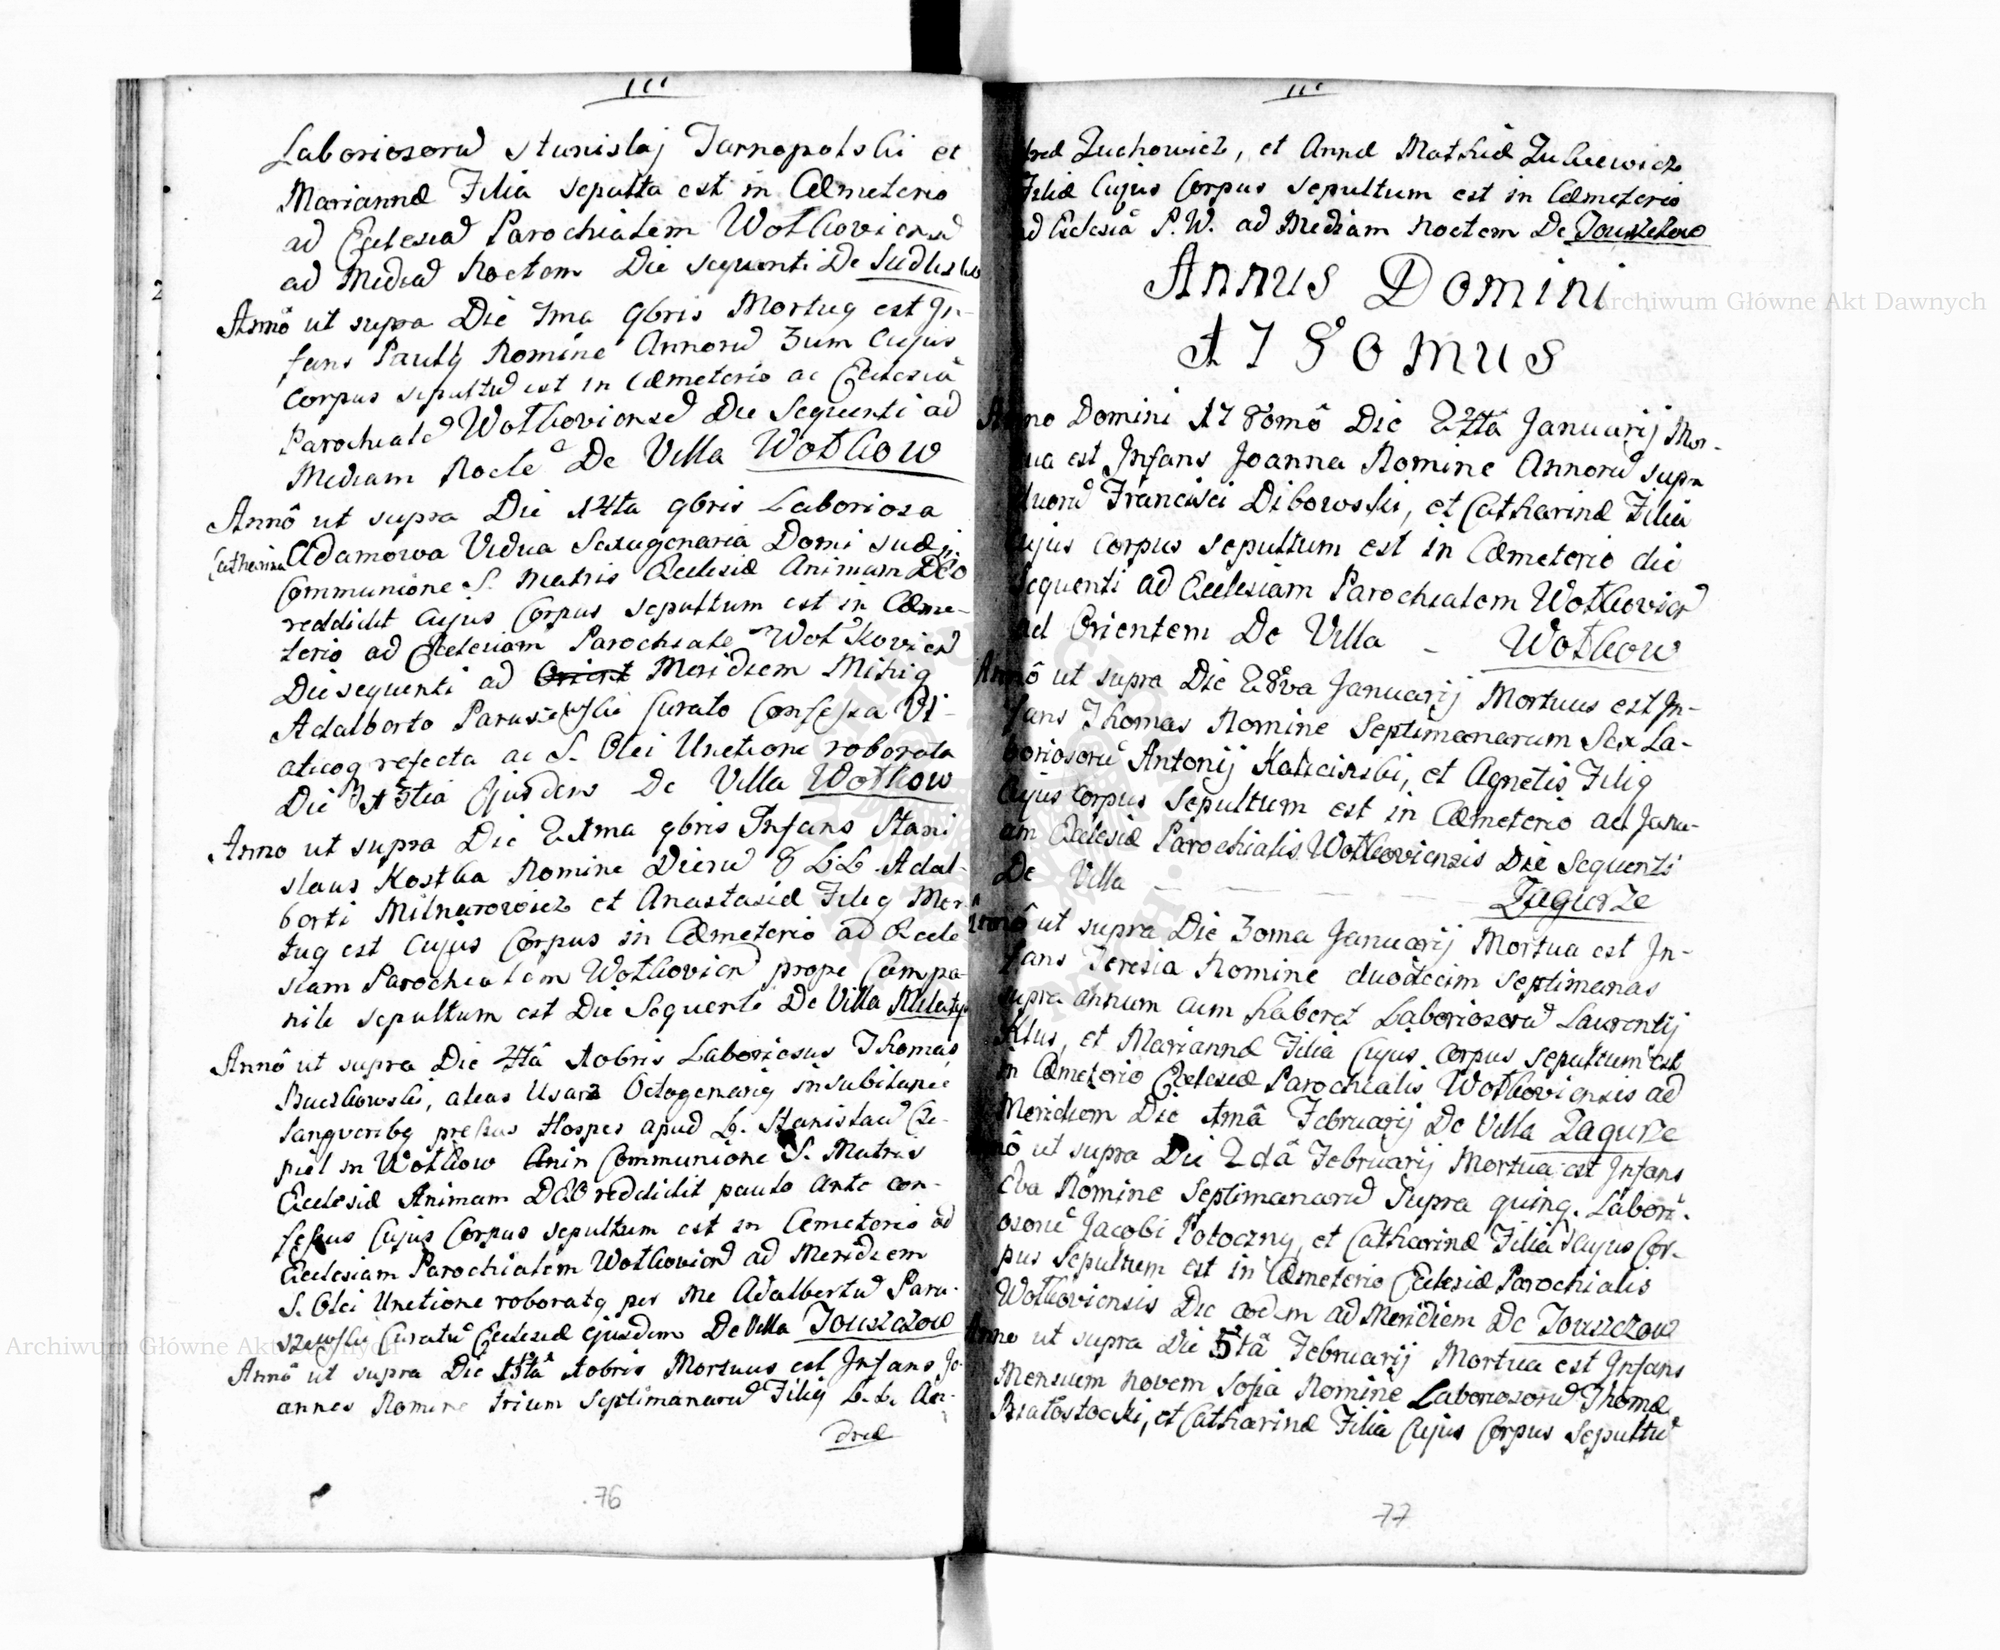 Laboriosorū Stanislaj Tarnopolski et
Mariannæ Filia sepulta est in Cæmeterio
ad Ecclesiā Parochialem Wołkoviensē
ad Mediā Noctem Die sequenti De
Annô ut supra Die 7ma 9bris Mortuq est In-
fans Paulq Nomine Annorū 3um Cujus
Corpus sepultū est in Cæmeterio ac Ecclesiā
Parochialē Wołkoviensē Die Sequenti ad
Mediam Noctē De Villa Wołkow
Annô ut supra Die 12ta 9bris Laboriosa
Catharina Adamowa Vidua Sexagenaria Domi suæ in
Communione S. Matris Ecclesiæ Animam DEO
reddidit Cujus Corpus sepultum est in Cæme-
terio ad Ecclesiam Parochialē Wołkovien
Die sequenti ad Orient Meridiem Mihiq
Adalberto Paruszewski Curato Confessa Vi-
aticoq refecta ac S. Olei Unctione roborata
Die 13tia Ejusdem De Villa Wołkow
Anno ut supra Die 21ma 9bris Infans Stani
slaus Kostka Nomine Dierū 8 L.L. Adal-
berti Milnarowicz et Anastasiæ Filiq Mor
tuq est Cujus Corpus in Cæmeterio ad Eccle
siam Parochialem Wołkovien prope Campa-
nile sepultum est Die Sequenti De Villa
Annô ut supra Die 4tâ Xobris Laboriosus Thomas
Buczkowski, alias Usarz Octogenariq in subitanee
Sangvenibq pressus Hospes apud L. Stanislaū Cze-
piel in Wołkow Anim Communione S. Matris
Ecclesiæ Animam DEO reddidit paulo ante con-
fessus Cujus Corpus sepultum est in Cemeterio ad
Ecclesiam Parochialem Wołkovien ad Meridiem
S. Olei Unctione roboratq per Me Adalbertū Paru-
szewski Curatū Ecclesiæ ejusdem De Villa Touszczow
Annô ut supra Die Xobris Mortuus est Infans Jo-
annes Nomine trium Septimanarū Filiq L.L. An-
dreæ
76
dreæ Zuchowicz, et Annæ Mathiæ
Filiæ Cujus Corpus sepultum est in Cæmeterio
ad Eclesiā P.W. ad Mediam Noctem De
Annus Domini
1780mus
Anno Domini 1780mô Die 24tâ Januarij Mor-
tua est Infans Joanna Nomine Annorū supra
duorū Francisci Dibowski, et Catharinæ Filia
Cujus Corpus sepultum est in Cæmeterio die
sequenti ad Ecclesiam Parochialem Wołkovien
ad Orientem De Villa - Wołkow
Annô ut supra Die 28va Januarij Mortuus est In-
fans Thomas Nomine Septimanarum Sex La-
boriosorū Antonij Kalicinski, et Agnetis Filiq
Cujus Corpus sepultum est in Cæmeterio ad Janu-
am Ecclesiæ Parochialis Wołkoviensis Die Sequenti
De Villa - - - - Zagurze
Annô ut supra Die 30ma Januarij Mortua est In-
fans Teresia Nomine duodecim septimanas
supra annum cum haberet Laboriosorū Laurentij
Klus, et Mariannæ Filia Cujus Corpus sepultum est
in Cæmeterio Ecclesiæ Parochialis Wołkoviensis ad
Meridiem Die 1mâ Februarij De Villa Zagurze
Annô ut supra Die 2dâ Februarij Mortua est Infans
Eva Nomine Septimanarū Supra quinq. Labori-
osorū Jacobi Potoczny, et Catharinæ Filia Cujus Cor-
pus sepultum est in Cæmeterio Ecclesiæ Parochialis
Wołkoviensis Die eodem ad Meridiem De Touszczow
Anno ut supra Die 5tâ Februarij Mortua est Infans
Mensium novem Sofia Nomine Laboriosorū Thomæ
Białostocki, et Catharinæ Filia Cujus Corpus sepultū
77
Archiwum Główne Akt Dawnych
Archiwum Główne Akt Dawnych